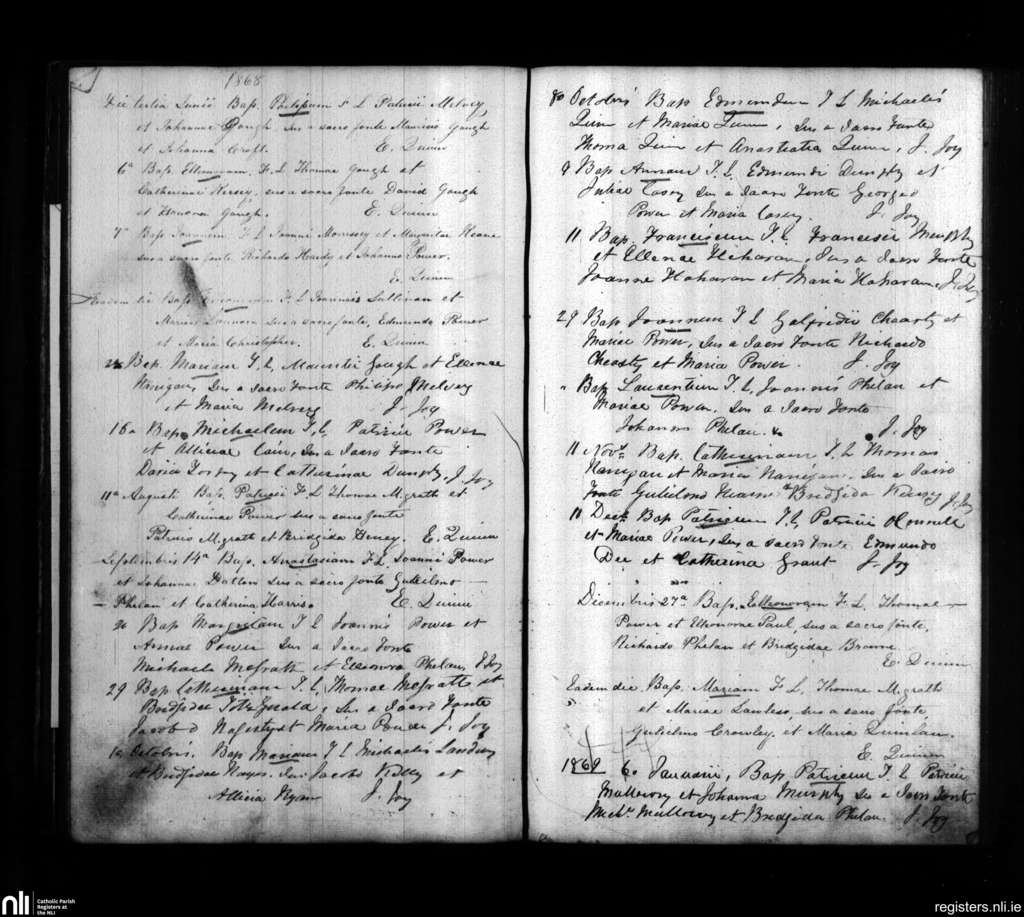 1868
Die tertia Junii Bap. Philipum F L Patricii Melvey
et Johannae Gough sus a sacro fonte Mauricio Gough
et Johanna Croft. E. Quinn
6a Bap. Ellenam, F. L Thomae Gough et
Catherinae Kersey, sus a sacro fonte David Gough
et Honora Gough. E. Quinn
Bap Joannem F L Joannis Morrissey et Margaritae Keane
sus a sacro fonte Richardo Hardy et Johanna Power.
E. Quinn
Eadem die Bap. F L Joannis Sullivan et
Mariae sus a sacro fonte, Edmundo Power
et Maria Christopher. E. Quinn
Bap. Mariam F. L, Mauritii Gough et Ellenae
Hanigan, Sus a Sacro Fonte Philipo Melvey
et Maria Melvey J. Joy
15a Bap. Michaelem F. L. Patricii Power
et Alliciae Cain, Sus a Sacro Fonte
David et Catherinae Dunphy, J. Joy
11a Augusti Bap. Patricii F L Thomae Mgrath et
Catherinae Power sus a sacro fonte
Patricio Mgrath et Bridgida Heney. E. Quinn
Septembris 14a Bap. Anastasiam F L Joannis Power
et Johannae Hallon sus a sacro fonte Gulielmo
Phelan et Catherina Harris. E. Quinn
20 Bap Margretam F L Joannis Power et
Annae Power Sus a Sacro Fonte
Michaele McGrath et Elleonora Phelan, J Joy
29 Bap Catherinam F. L, Thomae McGrath et
Bridgidae FitzGerald, Sus a Sacro Fonte
Jacobo et Maria Power J. Joy
10 Octobris. Bap. Mariam F L Michaelis Landers
et Bridgidae Hayes. Sus Jacobo Kelly et
Allicia Ryan J. Joy
Octobris Bap Edmundum F L Michaelis
Quinn et Mariae Quinn, Sus a Sacro Fonte
Thoma Quinn et Anastatia Quinn, J. Joy
9 Bap Annam F. L. Edmundi Dunphy et
Juliae Casey Sus a Sacro Fonte Georgeo
Power et Maria Casey. J. Joy
11 Bap. Franciscum F. L. Francisci Murphy
et Ellenae Haharan, Sus a Sacro Fonte
Joanne Haharan et Maria Haharan, J. Joy
29 Bap Joannem F L Galfridii Cheasty et
Mariae Power, Sus a Sacro Fonte Richardo
Cheasty et Maria Power. J. Joy
" Bap Laurentium F. L, Joannis Phelan et
Mariae Power. Sus a Sacro Fonte
Johannes Phelan. J. Joy
11 Novr. Bap. Catherinam F L Thomas
Hanigan et Maria Hanigan. Sus a Sacro
Fonte Gulielmo et Bridgida Kersey J. Joy
10 Decr. Bap Patricium F. L, Patricii OConnell
et Mariae Power, Sus a Sacro Fonte Edmundo
Dee et Catherina Grant J. Joy
Decembris 27a Bap. Elleonoram F L, Thomae
Power et Elleonorae Paul, sus a sacro fonte,
Richardo Phelan et Bridgidae Browne
E. Quinn
Eadem die Bap. Mariam F L, Thomae Mgrath
et Mariae Lawless, sus a sacro fonte
Gulielmo Crowley et Maria Quinlan.
E. Quinn
1869 6. Januarii, Bap. Patricium F. L Patricii
Mullowny et Johanna Murphy Sus a Sacro Fonte
Michl. Mullowny et Bridgida Phelan. J. Joy
nli
Catholic Parish
Registers at
the NLI
registers.nli.ie